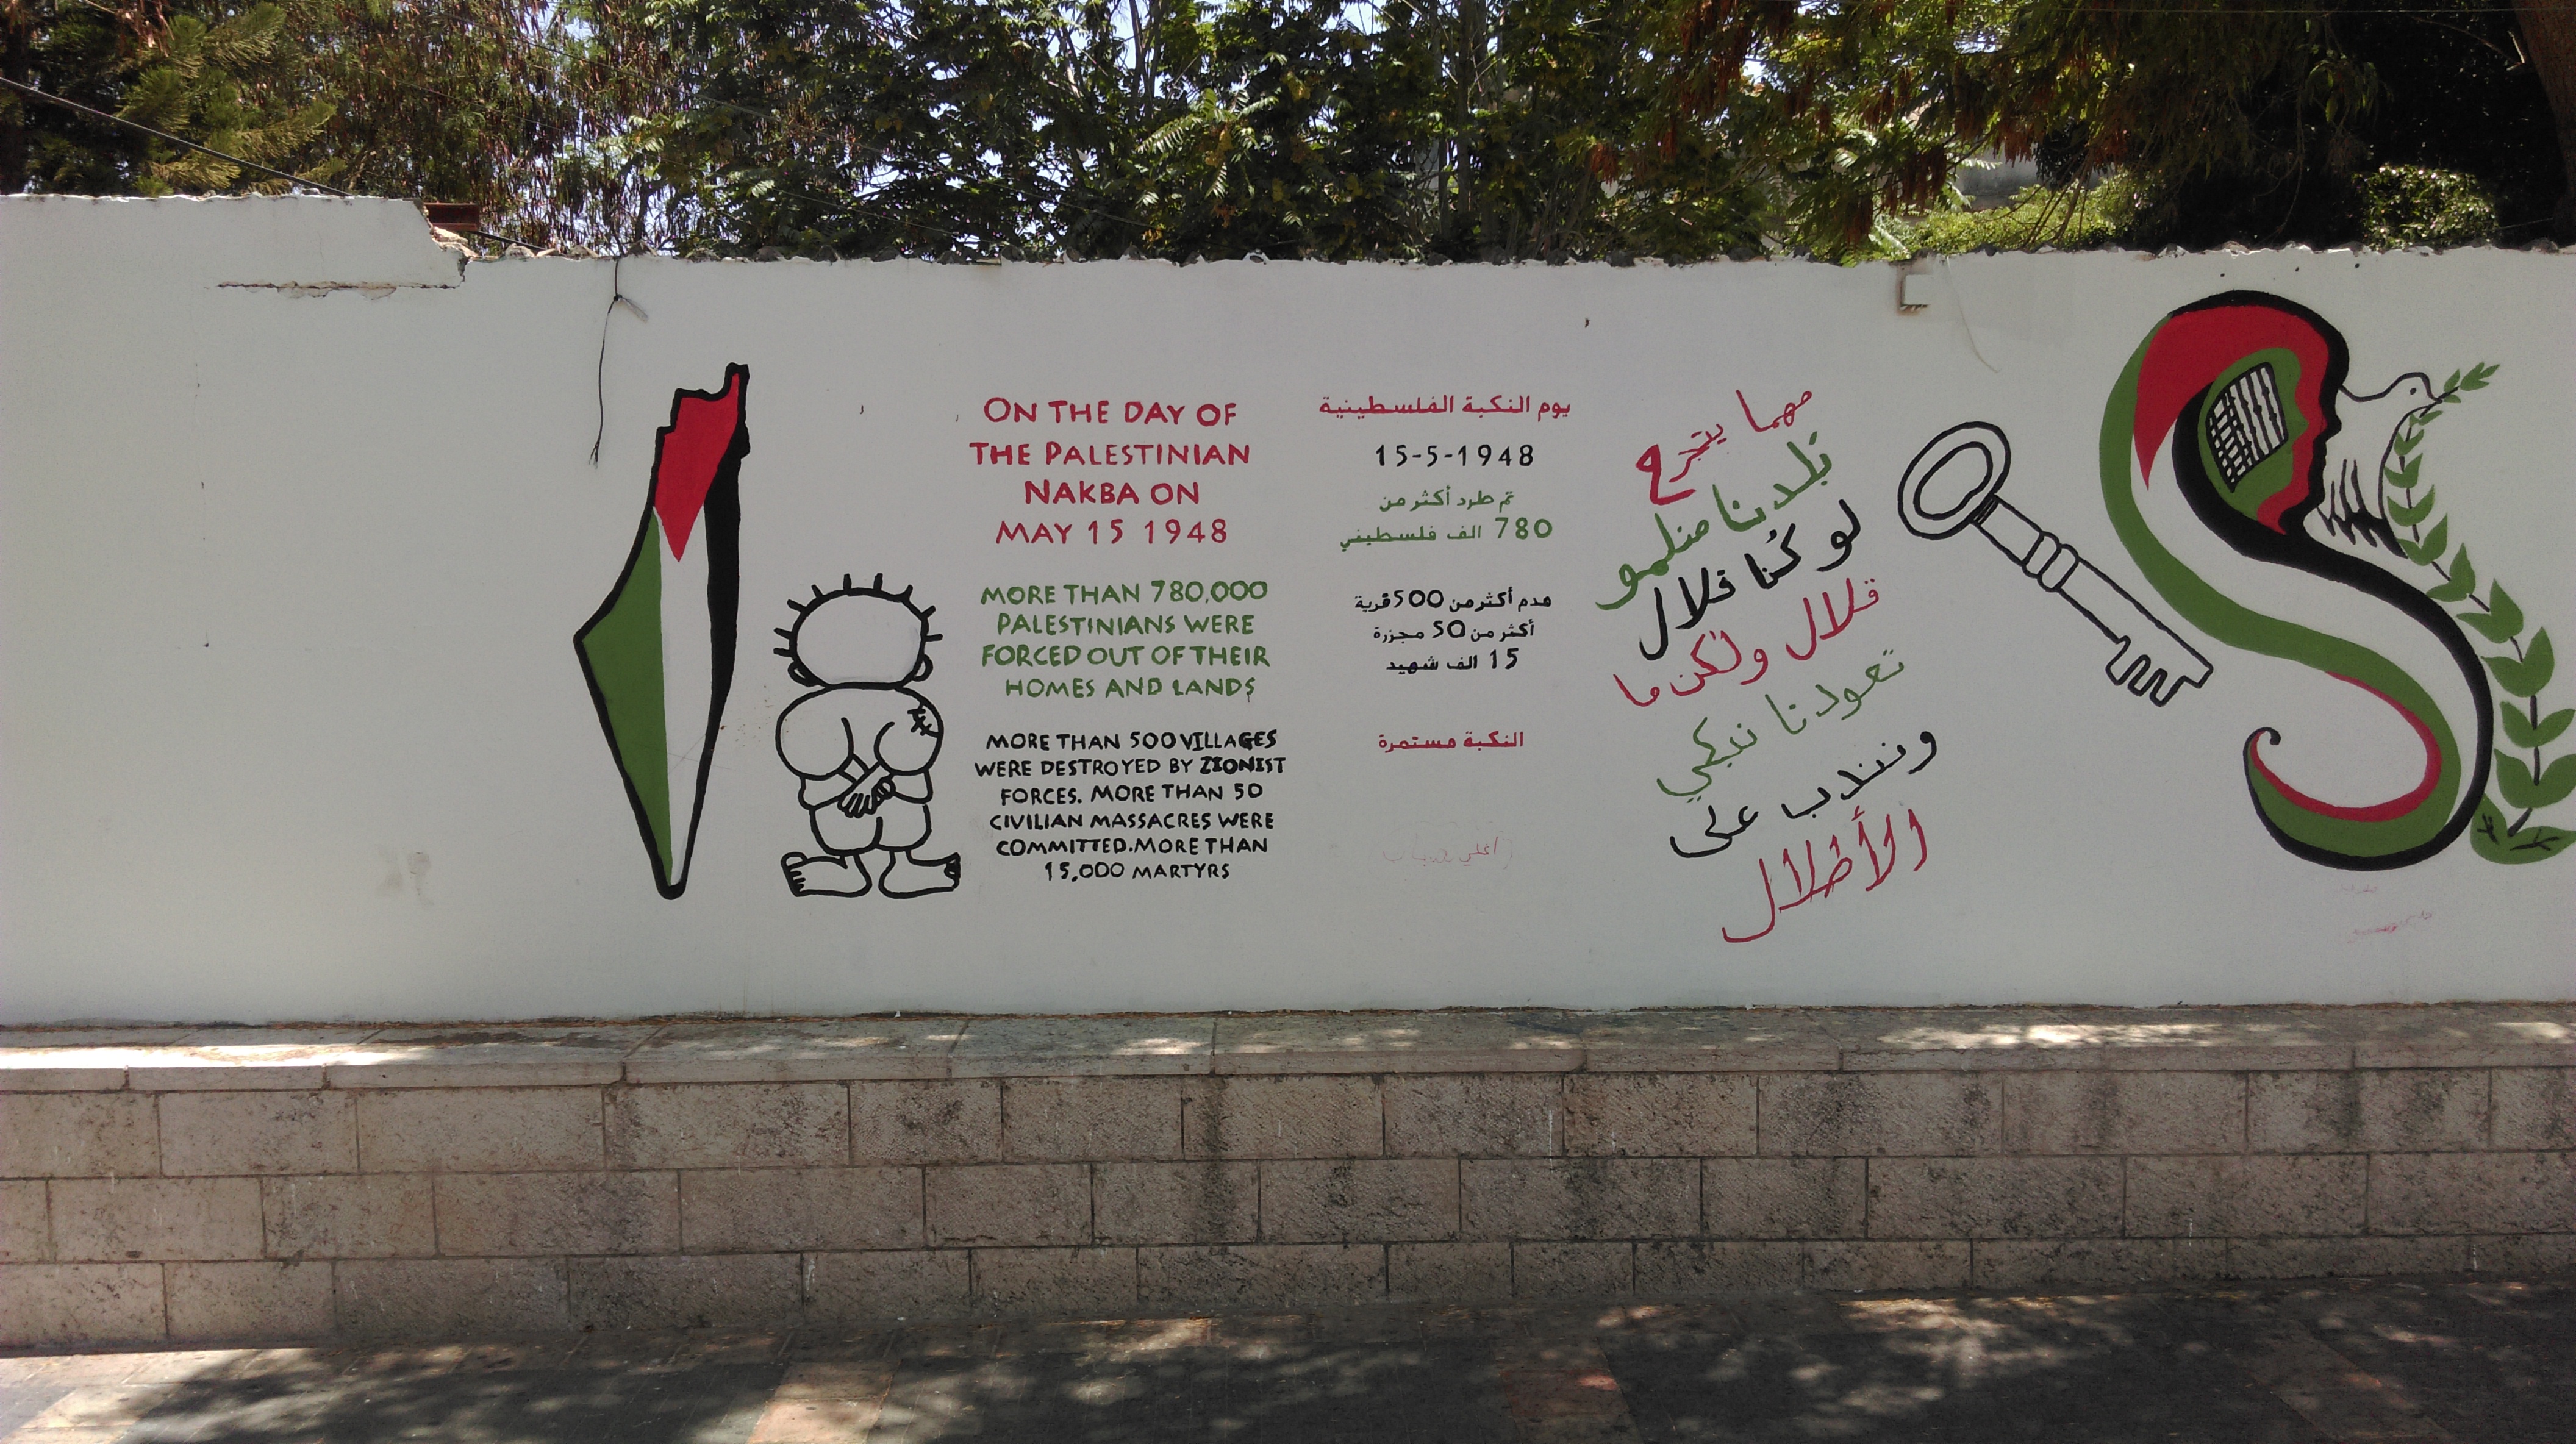 ON THE DAY OF
THE PALESTINIAN
NAKBA ON
MAY 15 1948
MORE THAN 780,000
PALESTINIANS WERE
FORCED OUT OF THEIR
HOMES AND LANDS
MORE THAN 500 VILLAGES
WERE DESTROYED BY ZIONIST
FORCES. MORE THAN 50
CIVILIAN MASSACRES WERE
COMMITTED. MORE THAN
15,000 MARTYRS
يوم النكبة الفلسطينية
15-5-1948
تم طرد أكثر من
780 الف فلسطيني
هدم أكثر من 500 قرية
أكثر من 50 مجزرة
15 الف شهيد
النكبة مستمرة
مهما يتجرح
بلدنا منلمو
لو كنا قلال
قلال ولكن ما
تعودنا نبكي
ونندب على
الأطلال